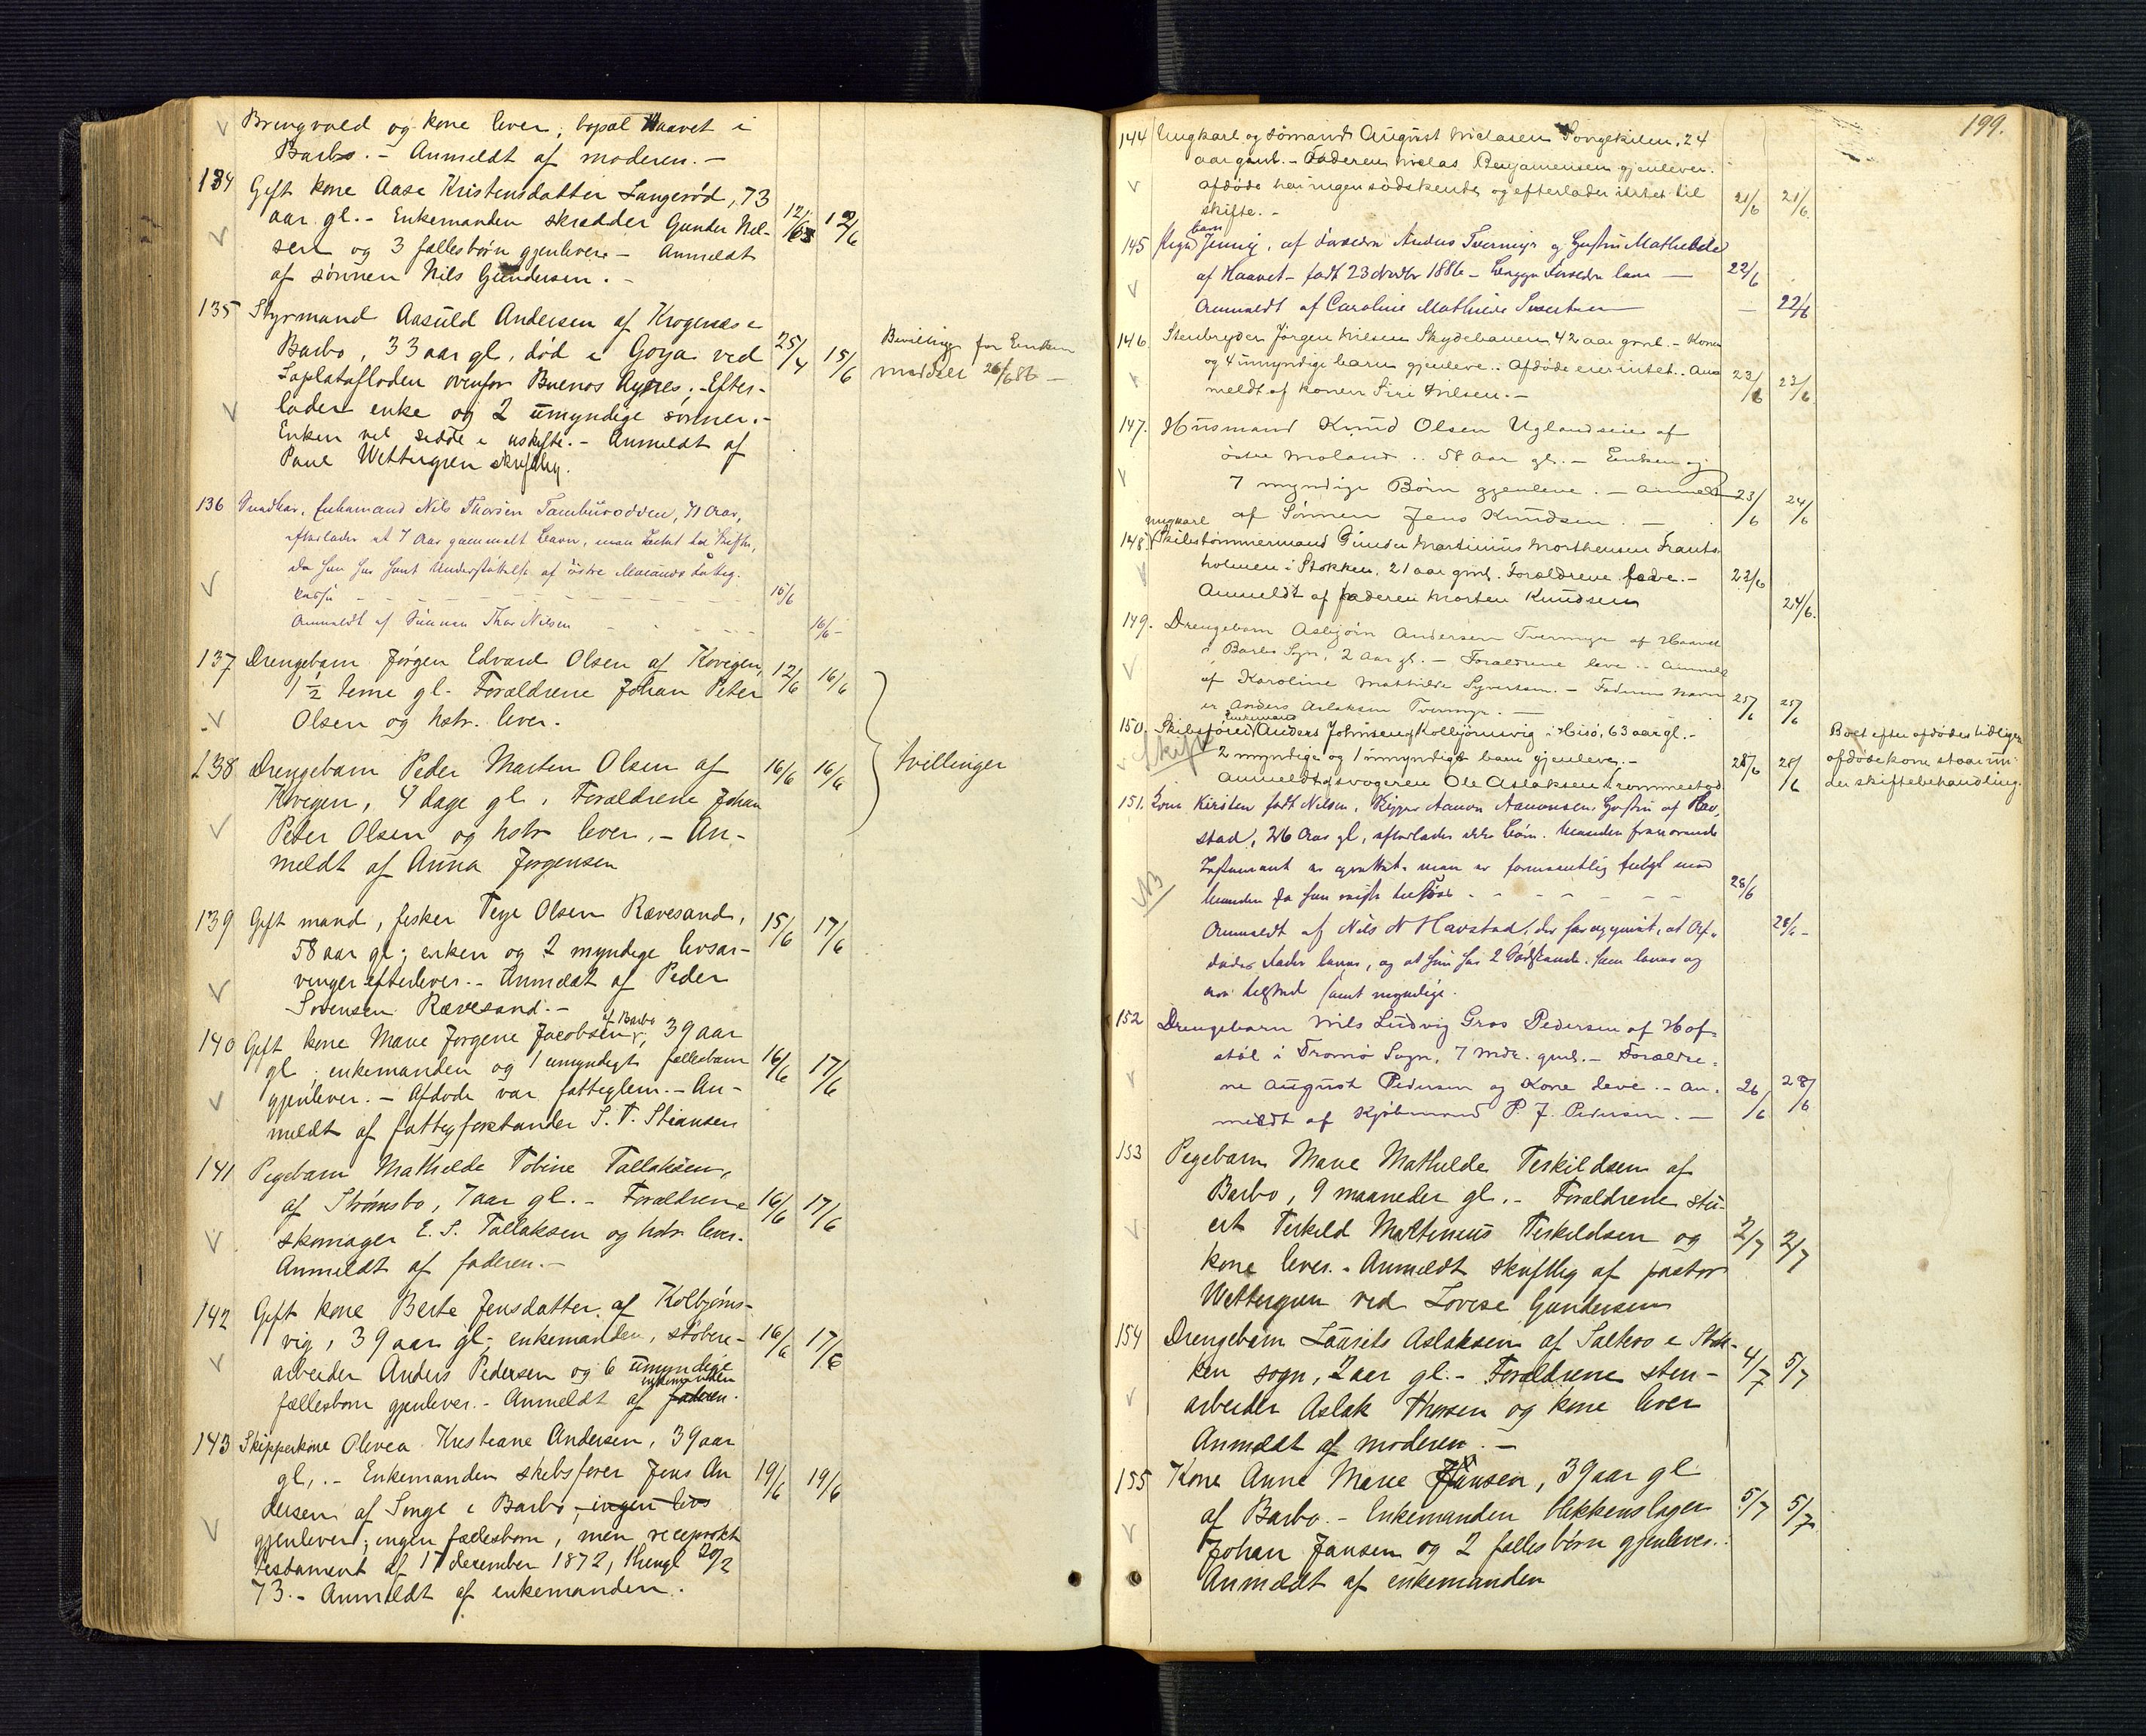 Bringvold og kone lever; bopæl Haavet i
Barbo. - Anmeldt af moderen. -
134 Gift kone Aase Kristensdatter Langerød, 73
aar gl. - Enkemanden skrædder Gunder Niel-
sen og 3 fællesbørn gjenlever. - Anmeldt
12/6 12/6
af sønnen Nils Gundersen. -
135 Styrmand Aasuld Andersen af Krogenæs i
Barbo, 33 aar gl, død i Goya ved
25/4 15/6
Laplatafloden ovenfor Buenos Ayres; - Efter-
lader enke og 2 umyndige sønner. -
Enken vil sidde i uskifte. - Anmeldt af
Paul Wettergren skriftlig.
Bevilling for Enken
meddelt 26/6 86 -
136 Enkemand Nils Thorsen Tambursodden, 71 Aar,
efterlader et 7 Aar gammelt Barn, men Intet til Skifte,
da han har havt Understøttelse af østre Molands Fattig-
kasse - - - - 15/6
Anmeldt af Sønnen Thor Nilsen - - - 16/6 -
137 Drengebarn Jørgen Edvard Olsen af Kovigen,
1½ time gl. Forældrene Johan Peter
12/6 16/6
Olsen og hstr. lever.
138 Drengebarn Peder Martin Olsen af
16/6 16/6
Kvigen, 4 dage gl, Forældrene Johan
Peter Olsen og hstr lever. - An-
meldt af Anna Jørgensen
tvillinger
139 Gift mand, fisker Terje Olsen Rævesand,
15/6 17/6
58 aar gl; enken og 2 myndige livsar-
vinger efterlever. - Anmeldt af Peder
Sørensen Rævesand. -
140 Gift kone Marie Jørgine Jacobsen af Barbo, 39 aar
gl, enkemanden og 1 umyndigt fællesbarn
16/6 17/6
gjenlever. - Afdøde var fattiglem. - An-
meldt af fattigforstander S. T. Stiansen
141 Pigebarn Mathilde Tobine Tallaksen,
af Strømsbo, 7 aar gl. - Forældrene
16/6 17/6
skomager E. S. Tallaksen og hstr lever.
Anmeldt af faderen. -
142 Gift kone Berte Jensdatter af Kolbjørns-
vig, 39 aar gl; enkemanden, støberi-
16/6 17/6
arbeider Anders Pedersen og 6 umyndige
fællesbørn gjenlever. - Anmeldt af faderen. enkemanden
143 Skipperkone Olivea Kristiane Andersen, 39 aar
gl,. - Enkemanden skibsfører Jens An
19/6 19/6
dersen af Songe i Barbo, ingen livs
gjenlever; ingen fællesbørn, men reciprokt
testament af 17 december 1872, thingl 20/2
73. - Anmeldt af enkemanden.
199.
144 Ungkarl og sømand August Nielasen Songekilen, 24
aar gml. - Faderen Nielas Benjaminsen gjenlever.
Afdøde har ingen sødskende og efterlader intet til
skifte. - 21/6 21/6
145 Pigebarn Jenny, af Forældre Anders Tvermyr og Hustru Mathilde
af Haavet - født 23 Novbr 1886 - Begge Forældre leve - 22/6
Anmeldt af Caroline Mathilde Sivertsen - 22/6
146 Stenbryder Jørgen Nilsen Skydebanen 42 aar gml. - Konen
og 4 umyndige børn gjenleve. - Afdøde eier intet. - An
23/6 23/6
meldt af konen Siri Nilsen. -
147. Husmand Knud Olsen Uglandseie af
østre Moland. 58 Aar gl. - Enken og
7 myndige Børn gjenleve. - Anmeldt
23/6 24/6
af Sønnen Jens Knudsen. -
148 ungkarl Skibstømmermand Gunder Martinius Morthensen Frants-
holmen i Stokken. 21 aar gml. Forældrene leve. - 22/6
Anmeldt af faderen Morten Knudsen 24/6.
149. Drengebarn Asbjørn Andersen Tvermyr af Haavet
i Barbo Sogn, 2 Aar gl. - Forældrene leve. - Anmeldt
af Karoline Mathilde Syvertsen. - Faderens navn
er Anders Aslaksen Tvermyr. - 25/6 25/6
150. Skibsfører Enkemand Anders Johnsen Kolbjørnsvig i Hisø, 63 aar gl. -
Skifte 2 myndige og 1 umyndigt barn gjenlever. - 28/6 28/6
Anmeldt af svogeren Ole Aslaksen Trommestad
Boet efter afdødes tidligere
afdøde kone staar un-
der skiftebehandling.
151. Kone Kirsten født Nilsen, Skipper Aanon Aanonsens Hustru af Hav-
stad, 26 Aar gl, efterlader ikke Børn. Manden
Testament er oprettet, men er formentlig
NB Manden da hun - - - - 28/6
Anmeldt af Nils N Havstad, der har opgivet, at Af-
dødes Fader lever, og at hun har 2 Sødskende, som lever og
ere helsød samt myndige. 28/6 -
152 Drengebarn Nils Ludvig Gros Pedersen af Hof-
støl i Tromø Sogn, 7 mdr. gml. - Forældre-
ne August Pedersen og Kone leve. - An-
26/6 28/6
meldt af Kjøbmand P. J. Pedersen. -
153 Pigebarn Marie Mathilde Terkildsen af
Barbo, 9 maaneder gl. - Forældrene stu-
ert Terkild Martinius Terkildsen og
2/7 2/7
kone lever. - Anmeldt skriftlig af pastor
Wettergren ved Lovise Gundersen
154 Drengebarn Laurits Aslaksen af Salterø i Stok-
ken sogn, 2 aar gl. - Forældrene sten-
4/7 5/7
arbeider Aslak Thorsen og kone lever
Anmeldt af moderen. -
155 Kone Anne Marie Jansen, 39 aar gl
af Barbo. - Enkemanden blikkenslager
5/7 5/7
Johan Jansen og 2 fællesbørn gjenlever.
Anmeldt af enkemanden